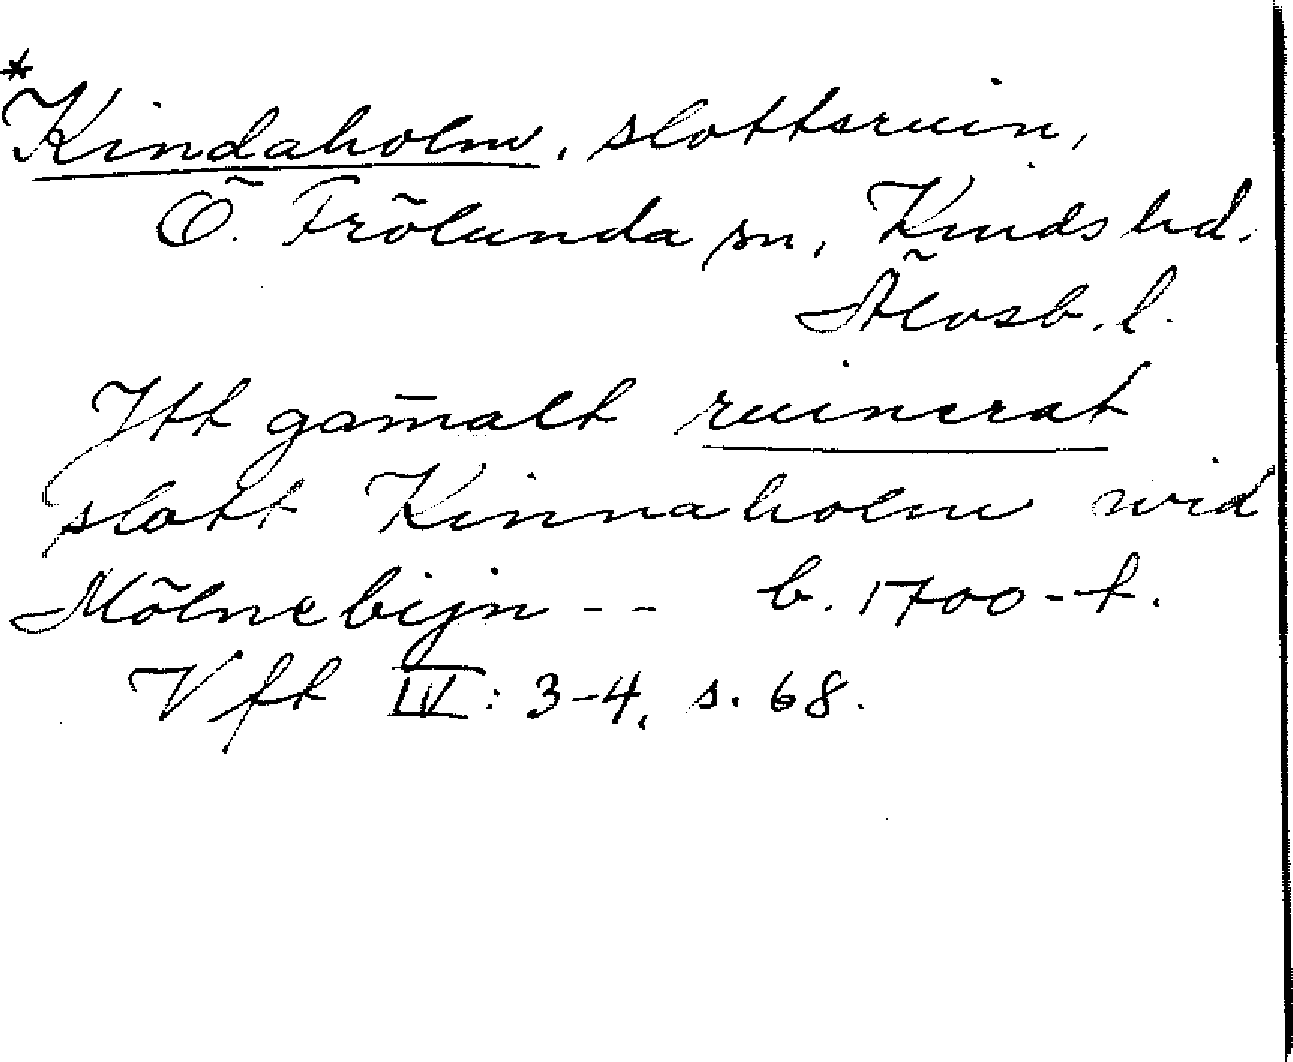 *
Kindaholm, slottsruin,
Ö. Frölunda sn, Kinds hd.
Älvsb. l.
Itt gam̄alt ruinerat
slott Kinnaholm wid
Mölnebijn -- b. 1700-t.
Vft IV: 3-4, s. 68.